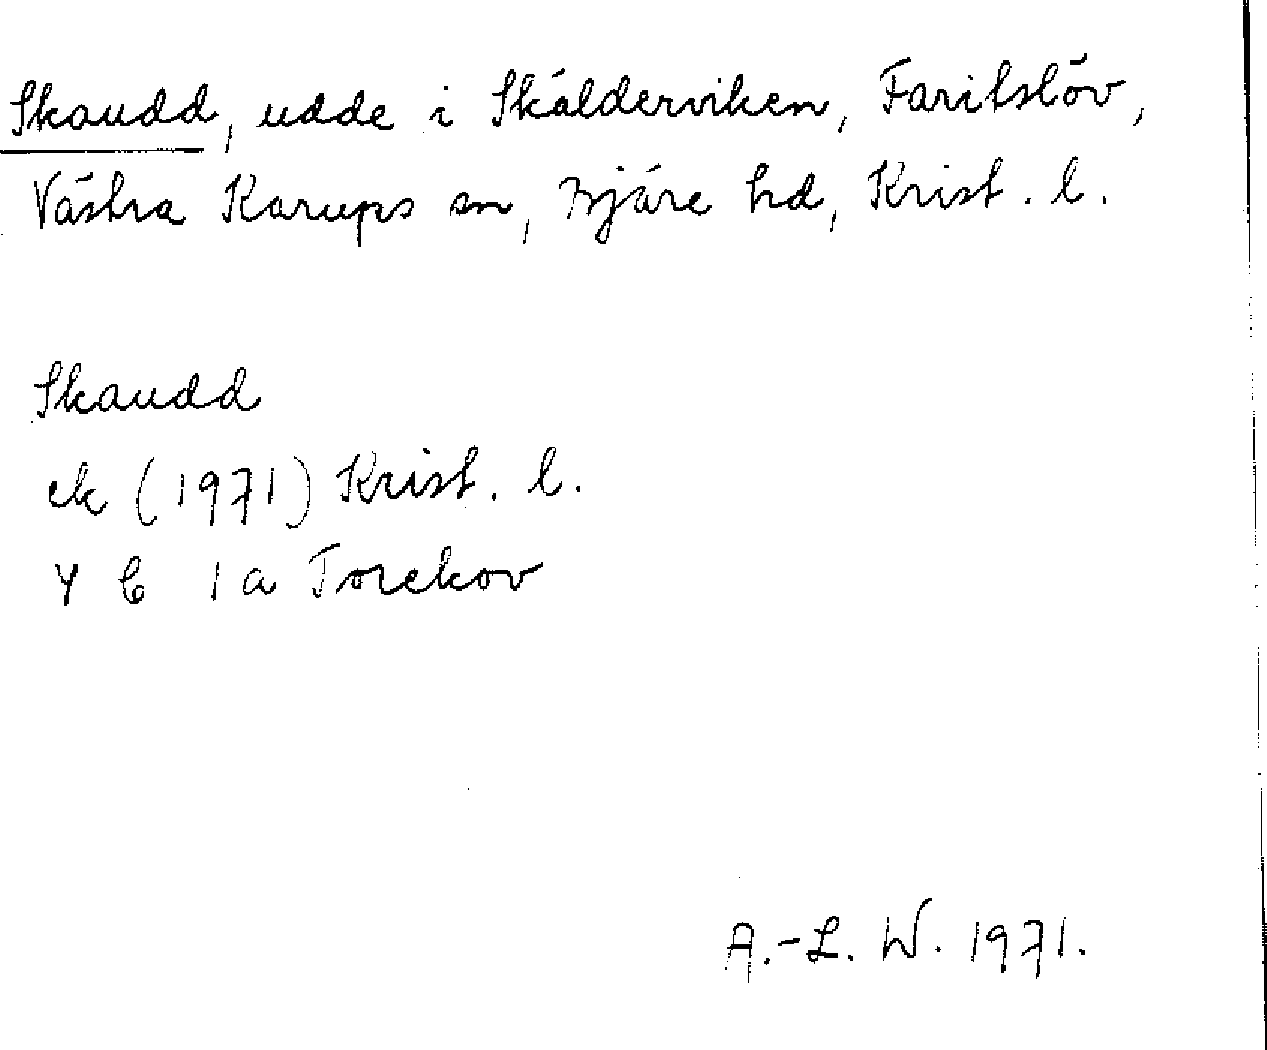 Skaudd, udde i Skälderviken, Faritslöv,
Västra Karups sn, Bjäre hd, Krist. l.
Skaudd
ek (1971) Krist. l.
Y C 1a Torekov
A.-L. W. 1971.